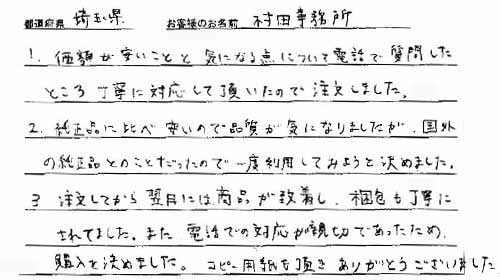 都道府県 埼玉県 お客様のお名前 村田事務所
1. 価額が安いことと気になる点について電話で質問した
ところ丁寧に対応して頂いたので注文しました。
2. 純正品に比べ安いので品質が気になりましたが、国外
の純正品とのことだったので一度利用してみようと決めました。
3 注文してから翌日には商品が到着し、梱包も丁寧に
されてました。また電話での対応が親切であったため、
購入を決めました。コピー用紙も頂きありがとうございました